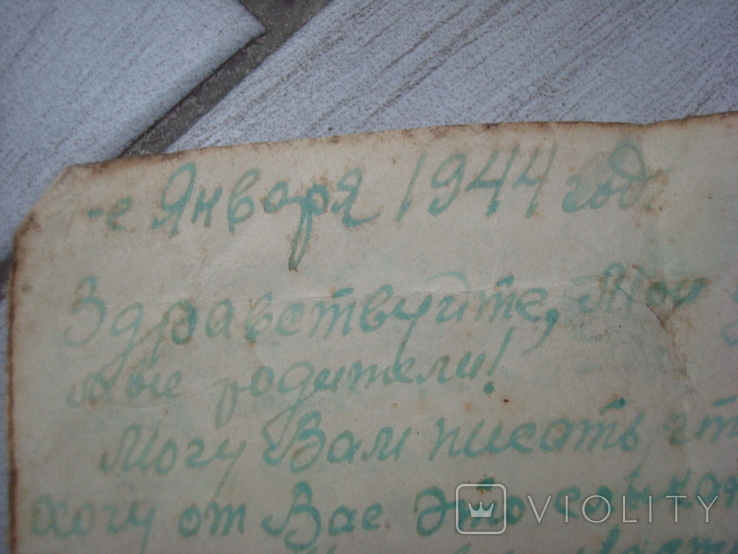 -е Января 1944 год
Здравствуйте, Мои
родители!
Могу Вам писать чт
хочу от Вас. Это
VIOLITY